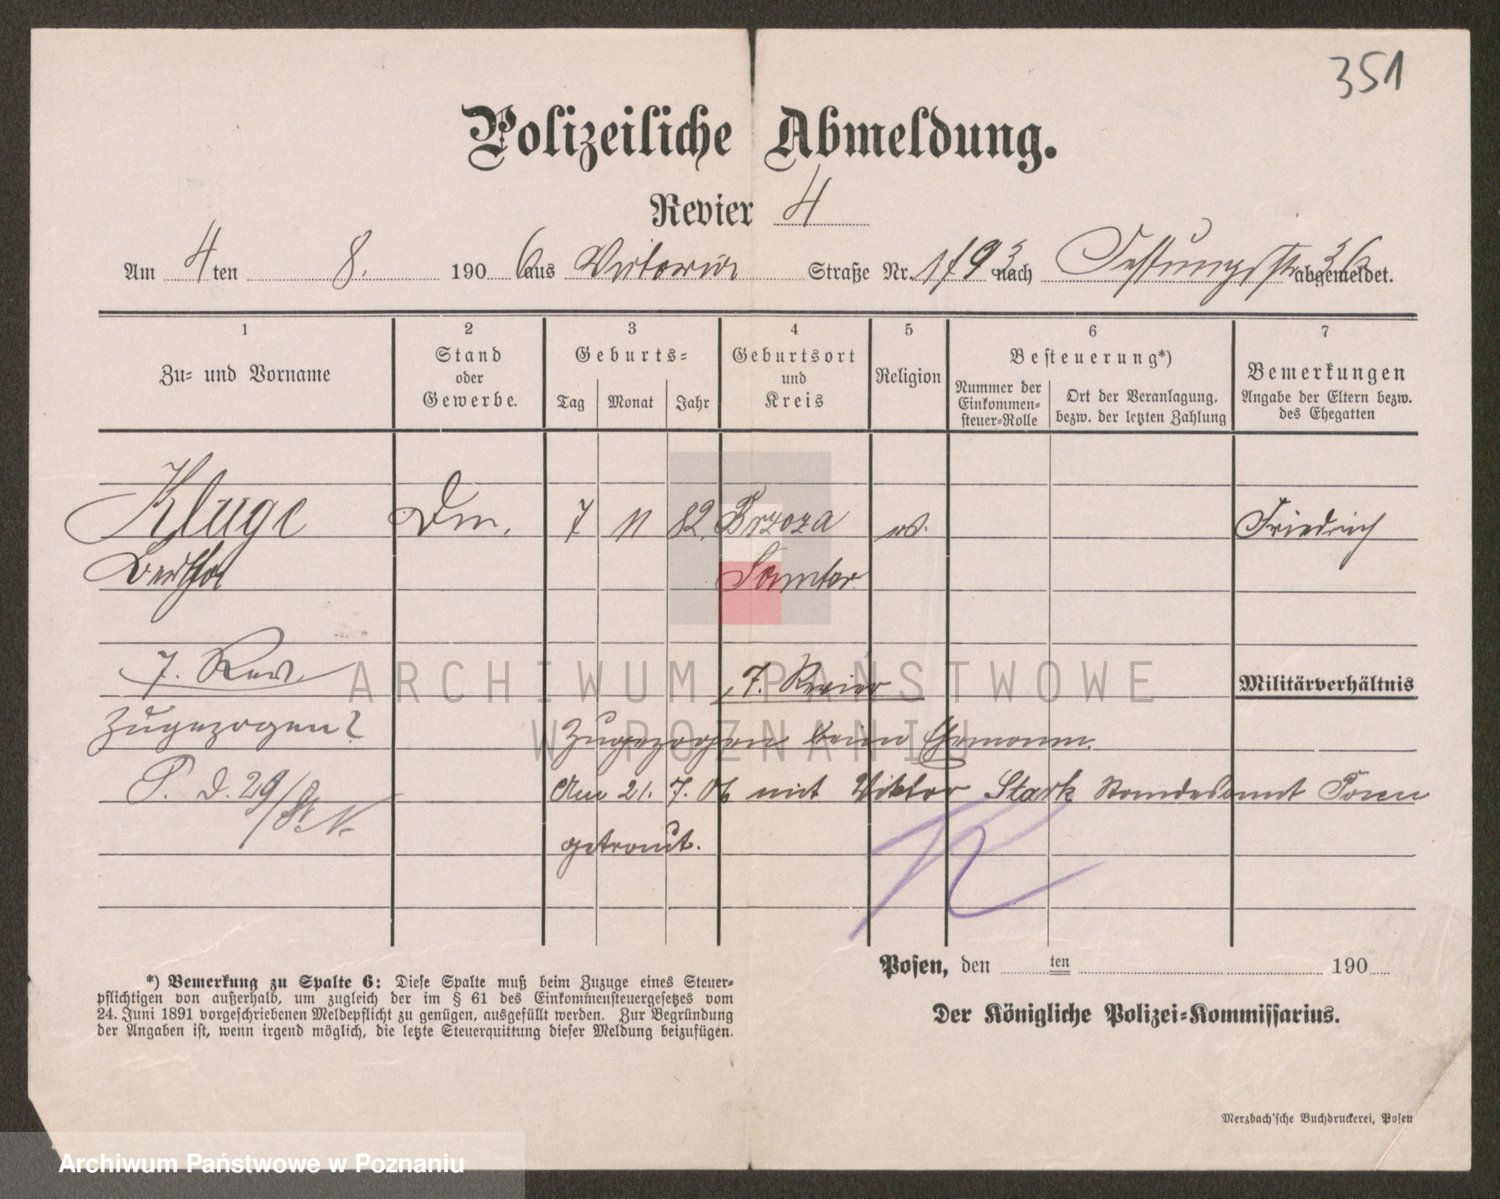 351
Polizeiliche Abmeldung.
Revier 4
Am 4ten 8. 1906 aus Victoria Straße Nr. nach abgemeldet.
1 2 3 4 5 6 7
Zu= und Vorname
Stand oder Gewerbe.
Geburts=
Tag Monat Jahr
Geburtsort und Kreis
Religion
Besteuerung*)
Nummer der Einkommen=steuer=Rolle
Ort der Veranlagung, bezw. der letzten Zahlung
Bemerkungen
Angabe der Eltern bezw. des Ehegatten
Kluge Dm. 7 11 82. Brzoza Friedrich
Bertha Samter
7. Rev. 7. Revier
Militärverhältnis
Zugezogen?
Zugezogen beim Ehemann.
P. d. 29/8.
Am 21. 7. 06 mit Viktor Stark Standesamt
getraut.
*) Bemerkung zu Spalte 6: Diese Spalte muß beim Zuzuge eines Steuer=
pflichtigen von außerhalb, um zugleich der im § 61 des Einkommensteuergesetzes vom
24. Juni 1891 vorgeschriebenen Meldepflicht zu genügen, ausgefüllt werden. Zur Begründung
der Angaben ist, wenn irgend möglich, die letzte Steuerquittung dieser Meldung beizufügen.
Posen, den ten 190
Der Königliche Polizei=Kommissarius.
Merzbach'sche Buchdruckerei, Posen
ARCHIWUM PAŃSTWOWE
W POZNANIU
Archiwum Państwowe w Poznaniu